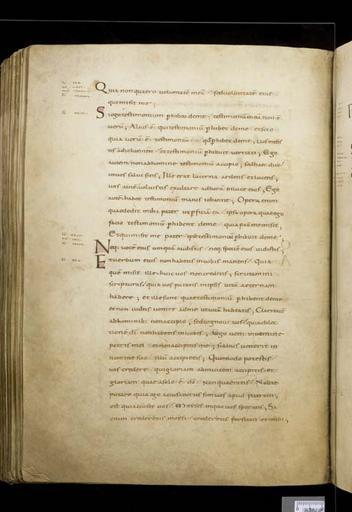 Quia non quaero voluntatē meā sed voluntatē eius
qui misit me;
Si ego testimonium phibeo de me testimoniū meū non ē
verū; Alius ē qui testimoniū phibet de me et scio
quia verū ē testimoniū quod phibet de me; Vos misistis
ad iohannem et testimoniū phibuit veritati; Ego
autem non ab homine testimoniū accipio; sed haec dico
ut vos salvi sitis; Ille erat lucerna ardens et lucens;
vos autē voluistis exultare ad horā in luce eius; Ego
autē habeo testimoniū maius iohanne; Opera enim
quae dedit mihi pater ut pficiā ea ipsa opera quae ego
facio testimoniū phibent de me quia pater me misit;
Et qui misit me pater ipse testimoniū phibuit de me;
Neq; vocē eius umquā audistis neq; speciē eius vidistis
Et verbum eius non habetis in vobis manens; Quia
quē misit ille huic vos non creditis; scrutamini
scripturas quia vos putatis in ipsis vitā aeternam
habere; et illae sunt quae testimoniū phibent de me
et non vultis venire ad me ut vitā habeatis; Claritatē
ab hominib; non accipio; sed cognovi vos quia dilec
tionē dī non habetis in vobis; Ego veni in nomine
patris mei et non accipitis me; si alius venerit in
nomine suo illū accipietis; Quomodo potestis
vos credere qui gloriam ab invicem accipitis et
gloriam quae a solo ē dō non quaeritis; Nolite
putare quia ego accusaturus sim vos apud patrem;
est qui accuset vos Moses in quo vos speratis; Si
enim crederetis mosi crederetis forsitan et mihi;